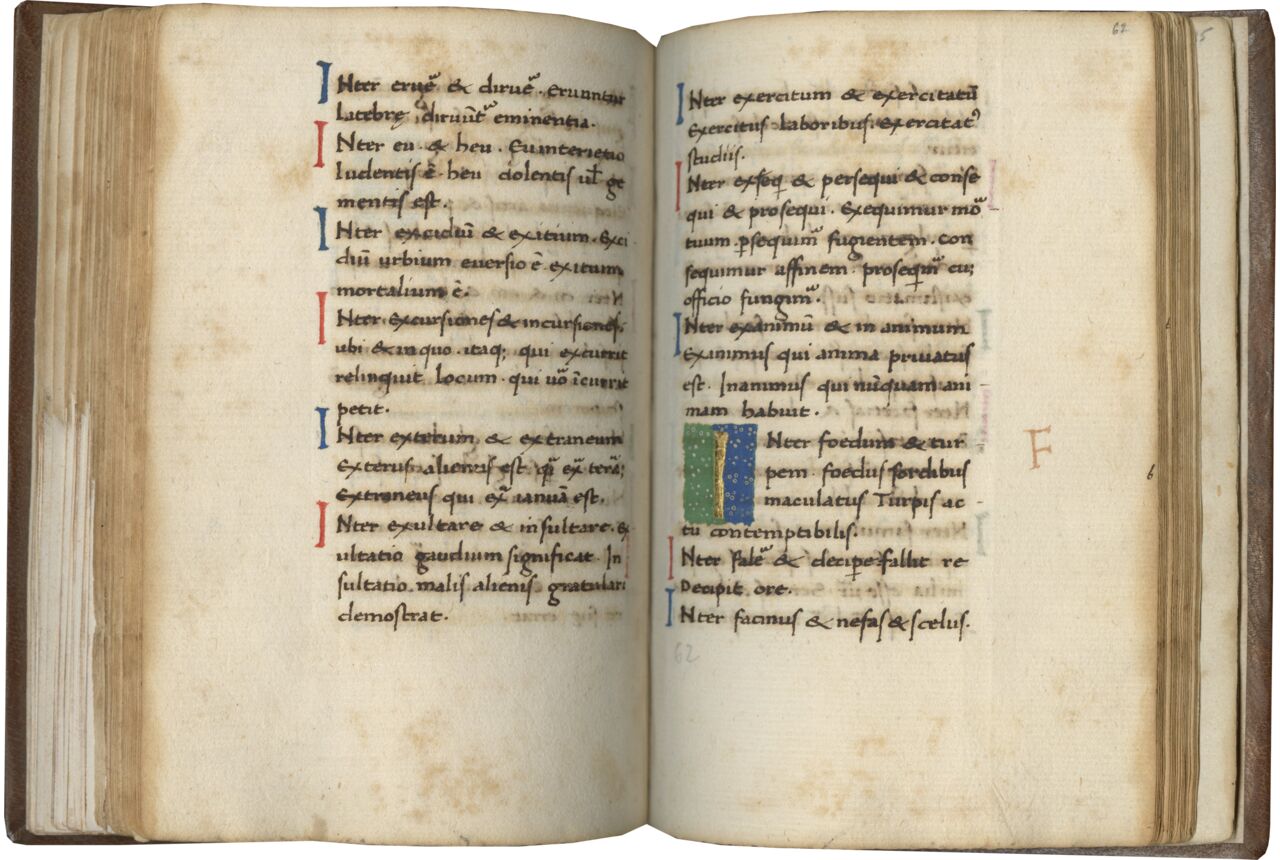 INter erue᷑ & dirue᷑. Eruuntur
latebrę diruūt᷑ eminentia.
INter eu & heu. Eu interietio
ludentis ē. heu dolentis ul̄ ge
mentis est.
INter excidiū & exitium. Exci
diū urbium euersio ē. exitium
mortalium ē.
INter excursiones & incursiones.
ubi & in quo. itaq; qui excurrit
relinquit locum. qui uō īcurrit
petit.
INter exterum & extraneum
Exterus alienus est
Extraneus qui ex̄ ianuā est.
INter exultare & insultare. Ex
ultatio gaudium significat. In
sultatio malis alienis gratulari
demostrat.
62
INter exercitum & exercitatū
Exercitus laboribus. Exercitat᷒
studiis.
INter exseq̄ & persequi & conse
qui & prosequi. Exequimur mo᷑
tuum. ꝑsequim᷑ fugientem. con
sequimur affinem. prosequim᷑ cu;
officio fungim᷑.
INter exanimū & in animum
Exanimus qui anima priuatus
est. Inanimus qui nūquam ani
mam habuit.
INter foedum & tur
pem. foedus sordibus
maculatus Turpis ac
tu contemptibilis.
F
INter falle᷑ & deciꝑe. fallit re
Decipit ore.
INter facinus & nefas & scelus.
62